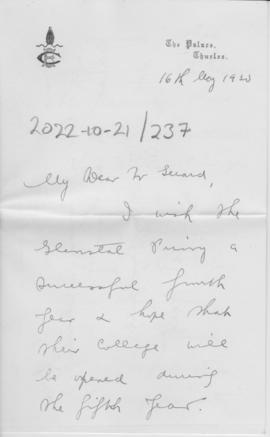 The Palace,
Thurles.
16th May 1930
2022-10-21/237
My Dear Fr
I wish the
Glenstal Priory a
successful fourth
year & hope that
their College will
be opened during
the fifth year.